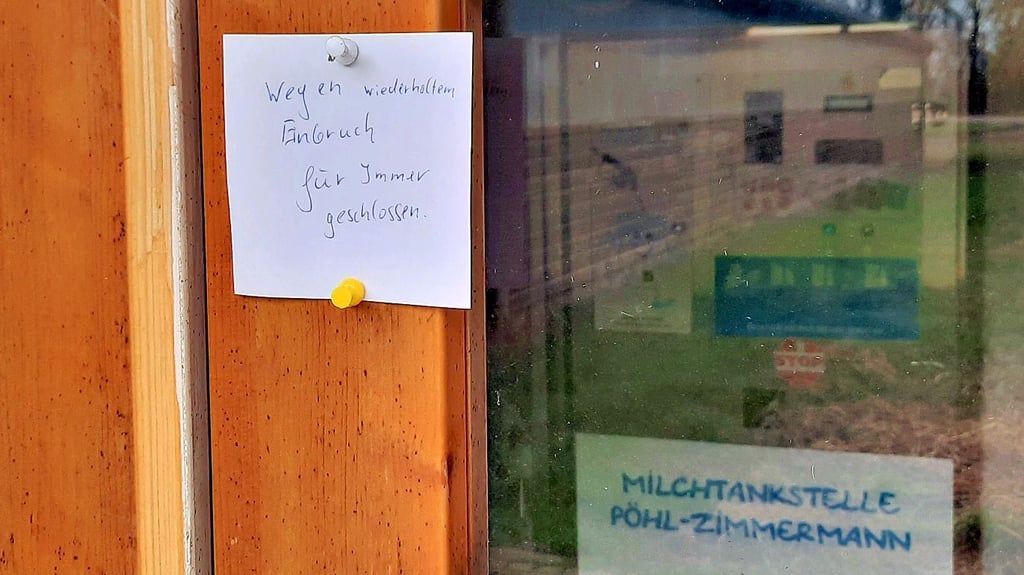 Wegen wiederholtem
Einbruch
für Immer
geschlossen.
STOP
MILCHTANKSTELLE
PÖHL-ZIMMERMANN